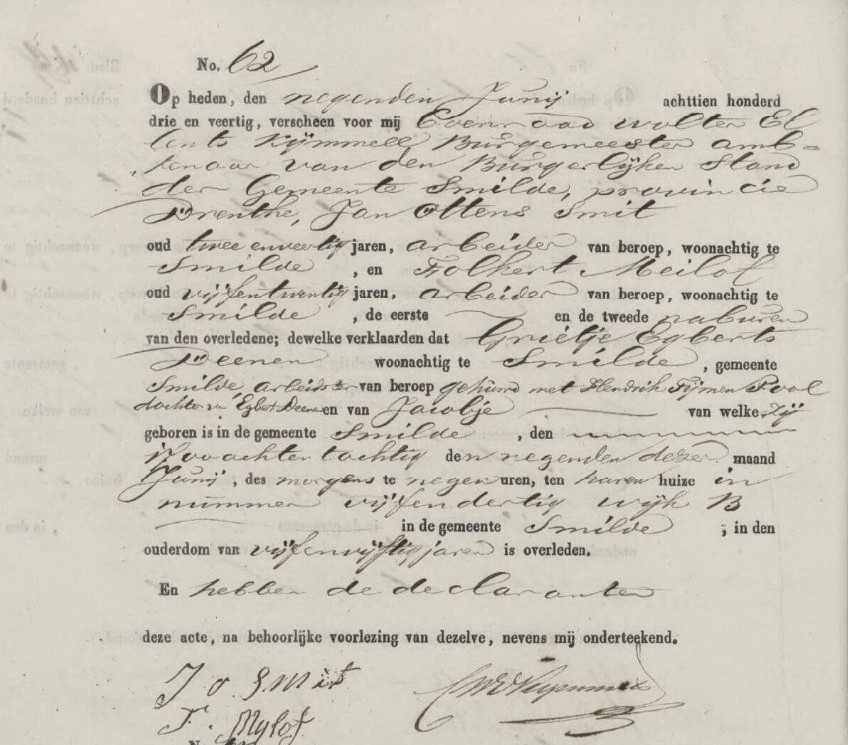 No. 62
Op heden, den negenden Junij achttien honderd
drie en veertig, verscheen voor mij Coenraad Wolter El
lents Kijmmell Burgemeester amb-
tenaar van den Burgerlijken Stand
der Gemeente Smilde, provincie
Drenthe, Jan Ottens Smit
oud twee enveertig jaren, arbeider van beroep, woonachtig te
Smilde, en Folkert Meilof
oud vijfentwintig jaren, arbeider van beroep, woonachtig te
Smilde, de eerste en de tweede naburen
van den overledene; dewelke verklaarden dat Grietje Egberts
Deenen woonachtig te Smilde, gemeente
Smilde arbeidster van beroep gehuwd met Hendrik Tijmen Pool
dochter van Egbert Deenen en van Jacobje van welke zij
geboren is in de gemeente Smilde, den
achtentachtig den negenden dezer maand
Junij, des morgens te negen uren, ten haren huize in
nummer vijfendertig wijk B
in de gemeente Smilde, in den
ouderdom van vijfenvijftig jaren is overleden.
En hebben de declaranten
deze acte, na behoorlijke voorlezing van dezelve, nevens mij onderteekend.
J O Smit
F. Mylof